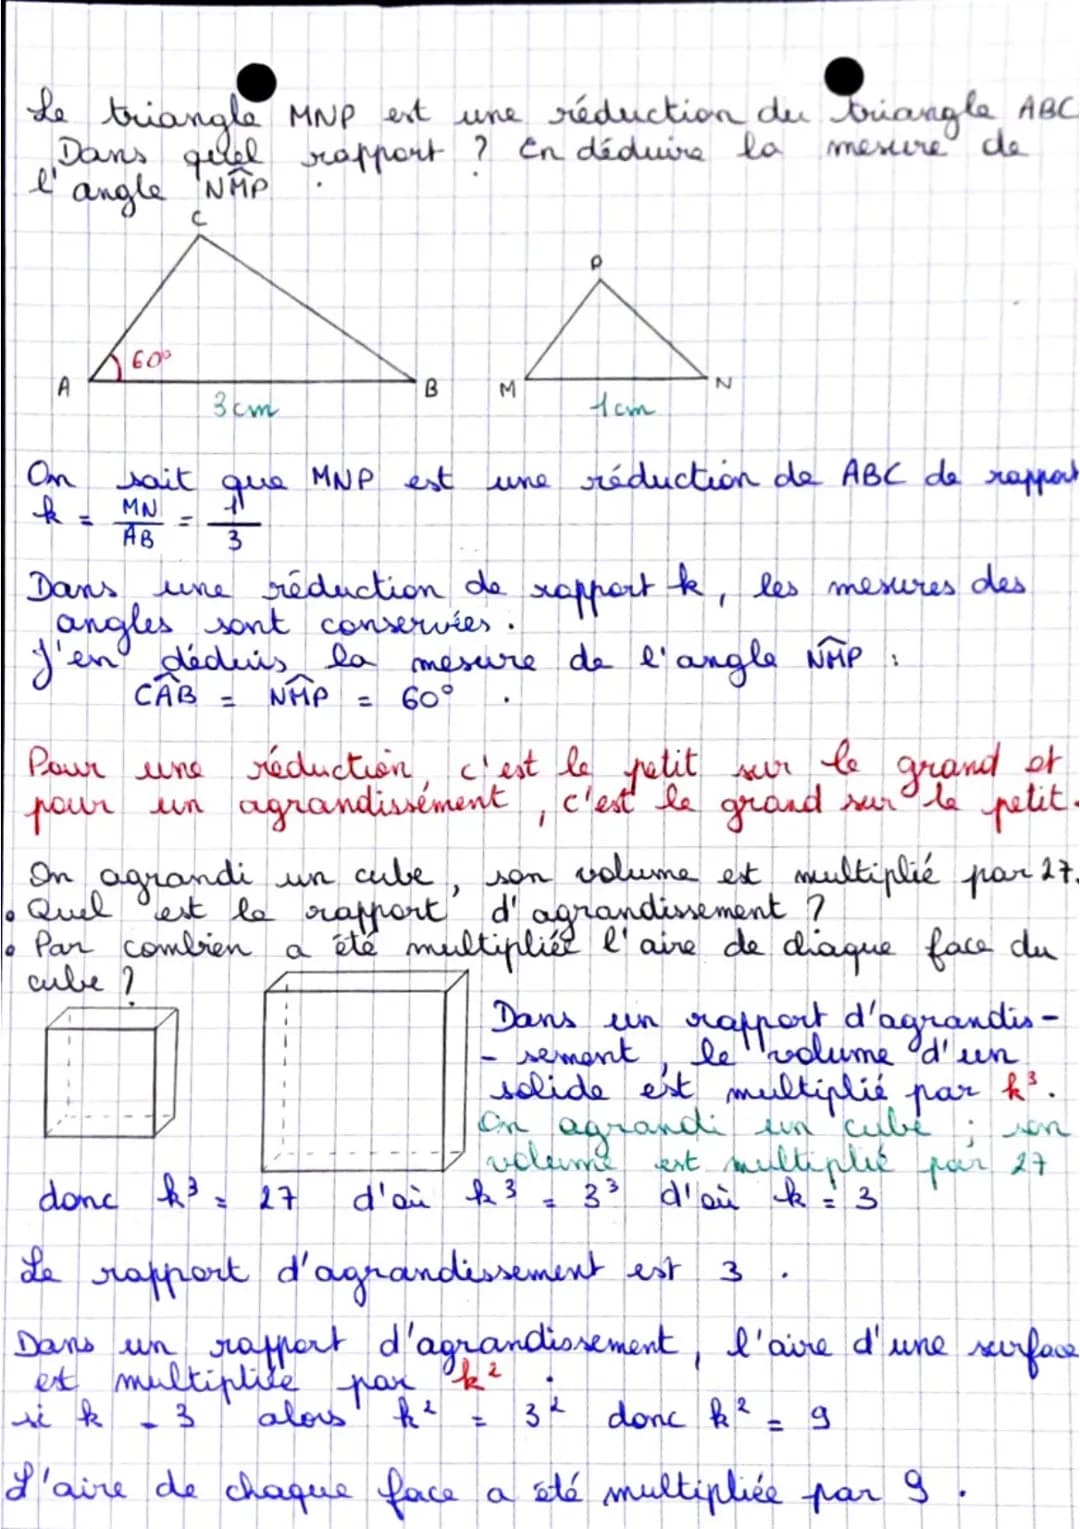 Le triangle MNP est une réduction du triangle ABC
Dans quel rapport ? En déduire la mesure de
l'angle NMP.
C
A
60°
B
3 cm
P
M
N
1 cm
On sait que MNP est une réduction de ABC de rapport
k = MN/AB = 1/3
Dans une réduction de rapport k, les mesures des
angles sont conservées.
J'en déduis la mesure de l'angle NMP :
CAB = NMP = 60°.
Pour une réduction, c'est le petit sur le grand et
pour un agrandissement, c'est le grand sur le petit.
On agrandi un cube, son volume est multiplié par 27.
• Quel est le rapport d'agrandissement ?
• Par combien a été multipliée l'aire de chaque face du
cube ?
Dans un rapport d'agrandis-
- sement, le volume d'un
solide est multiplié par k³.
On agrandi un cube ; son
volume est multiplié par 27
donc k³ = 27 d'où k³ = 3³ d'où k = 3
Le rapport d'agrandissement est 3.
Dans un rapport d'agrandissement, l'aire d'une surface
est multipliée par k².
si k = 3 alors k² = 3² donc k² = 9
L'aire de chaque face a été multipliée par 9.